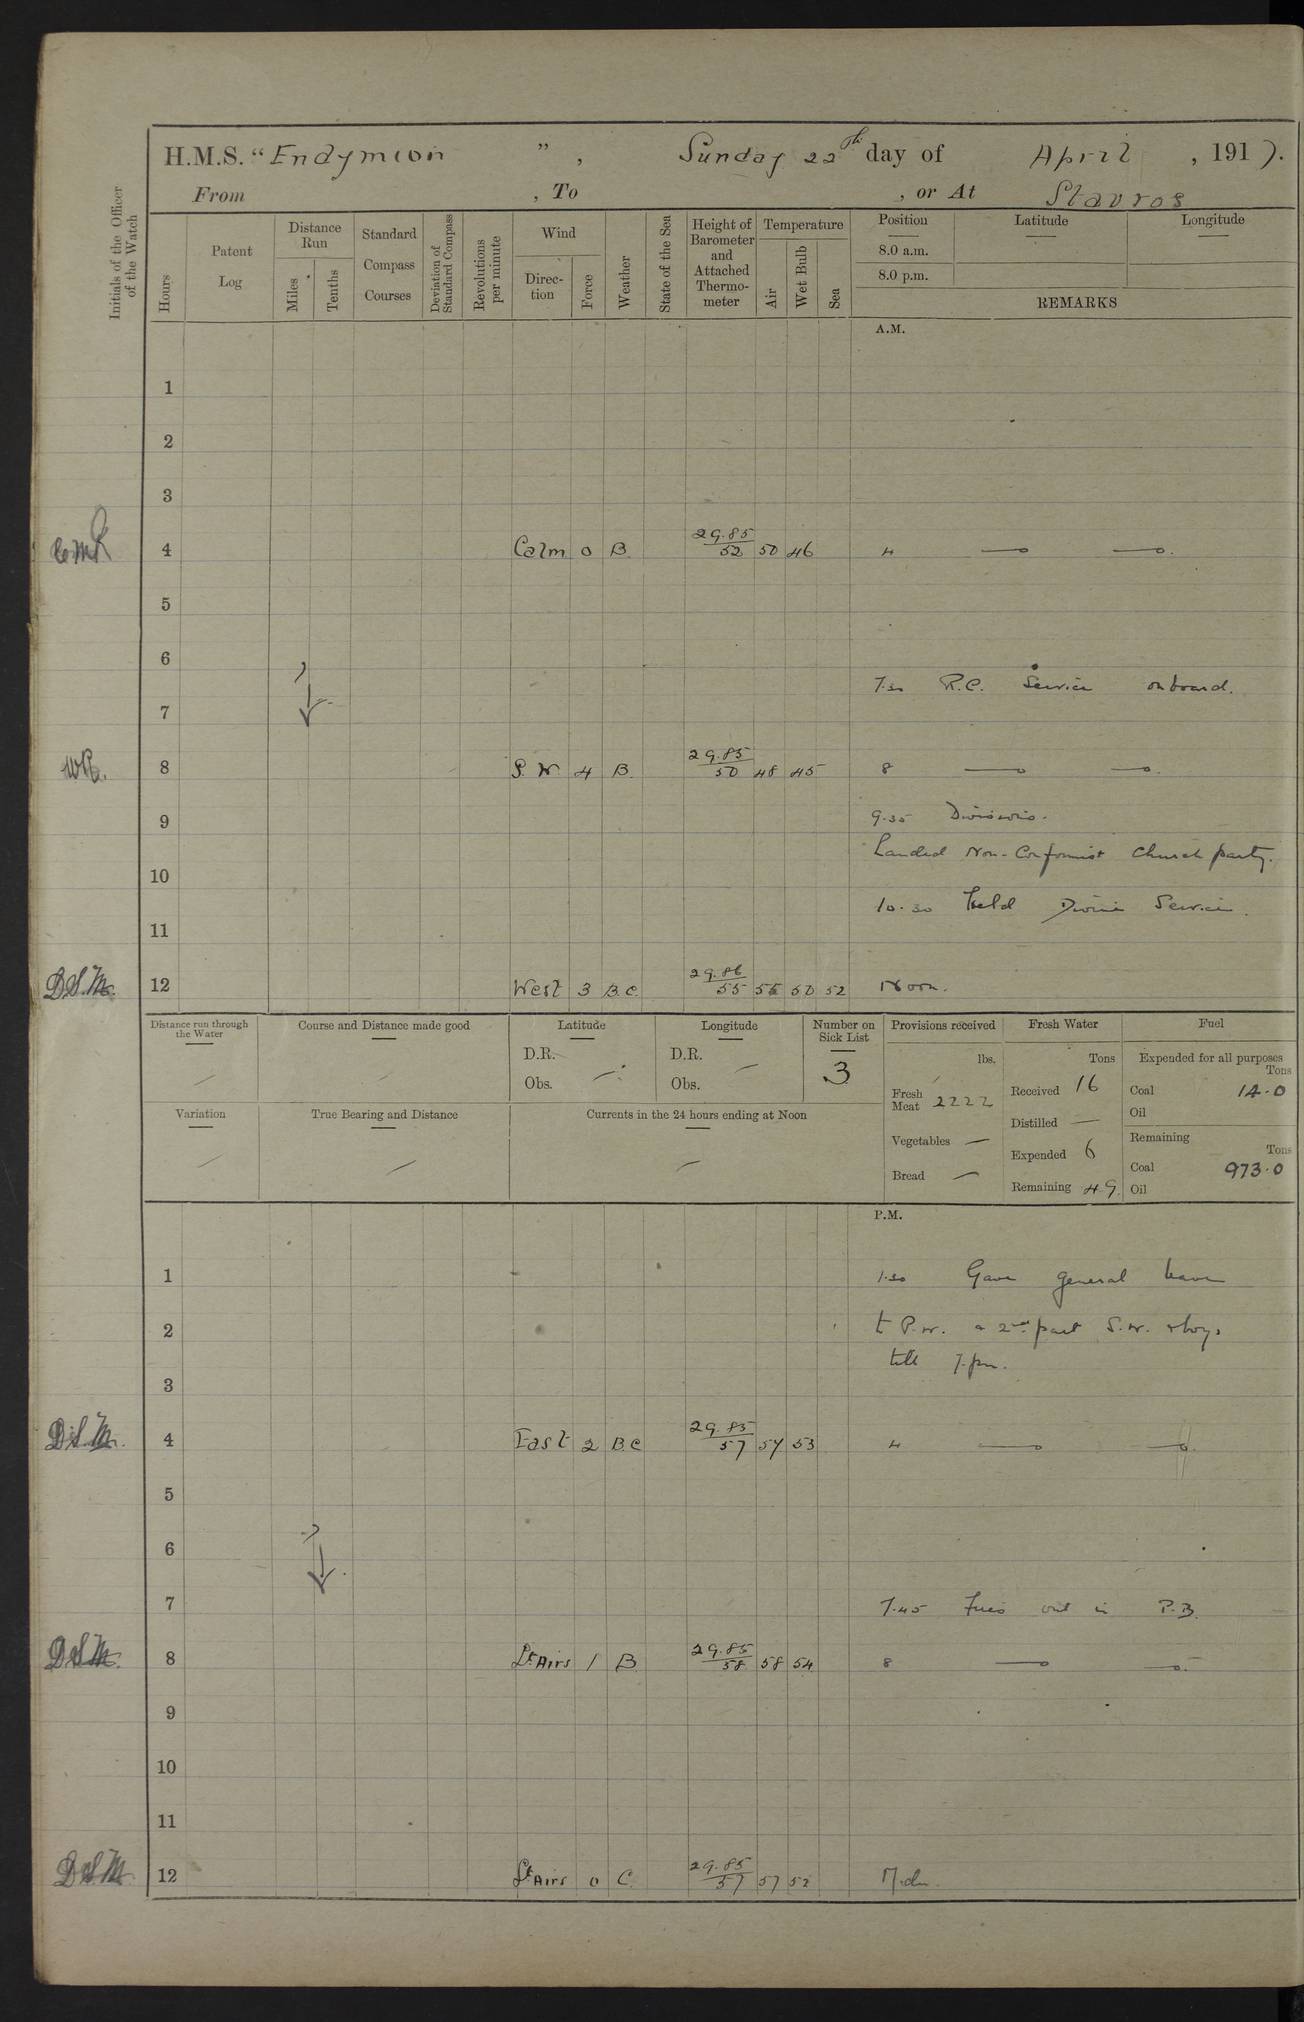 H.M.S. "Endymion", Sunday 22th day of April, 1917.
From , To , or At Stavros
Initials of the Officer of the Watch
Hours
Patent Log
Distance Run
Miles
Tenths
Standard Compass Courses
Deviation of Standard Compass
Revolutions per minute
Wind
Direction
Force
Weather
State of the Sea
Height of Barometer and Attached Thermometer
Temperature
Air
Wet Bulb
Sea
Position Latitude Longitude
8.0 a.m.
8.0 p.m.
REMARKS
A.M.
1
2
3
4 Calm 0 B. 29.85/52 50 46 4
5
6
7.30 R.C. Service onboard.
7
W.R. 8 S.W 4 B. 29.85/50 48 45 8
9.35 Divisions.
9
Landed Non-Conformist Church party.
10
10.30 Held Divine Service.
11
D.S.M. 12 West 3 B.C. 29.86/55 55 50 52 Noon.
Distance run through the Water
Course and Distance made good
Latitude
D.R.
Obs.
Longitude
D.R.
Obs.
Number on Sick List
3
Variation
True Bearing and Distance
Currents in the 24 hours ending at Noon
Provisions received
lbs.
Fresh Meat 2222
Vegetables —
Bread —
Fresh Water
Tons
Received 16
Distilled —
Expended 6
Remaining 49.
Fuel
Expended for all purposes
Tons
Coal 14.0
Oil
Remaining
Tons
Coal 973.0
Oil
P.M.
1 1.30 Gave general leave
2 to P.W. & 2nd part S.W. & boys
till 7. pm.
3
D.S.M. 4 East 2 B.C 29.85/57 57 53 4
5
6
7 7.45 Fires out in P.B.
D.S.M. 8 Lt Airs 1 B 29.85/58 58 54 8
9
10
11
D.S.M. 12 Lt Airs 0 C. 29.85/57 57 52 Mdn.